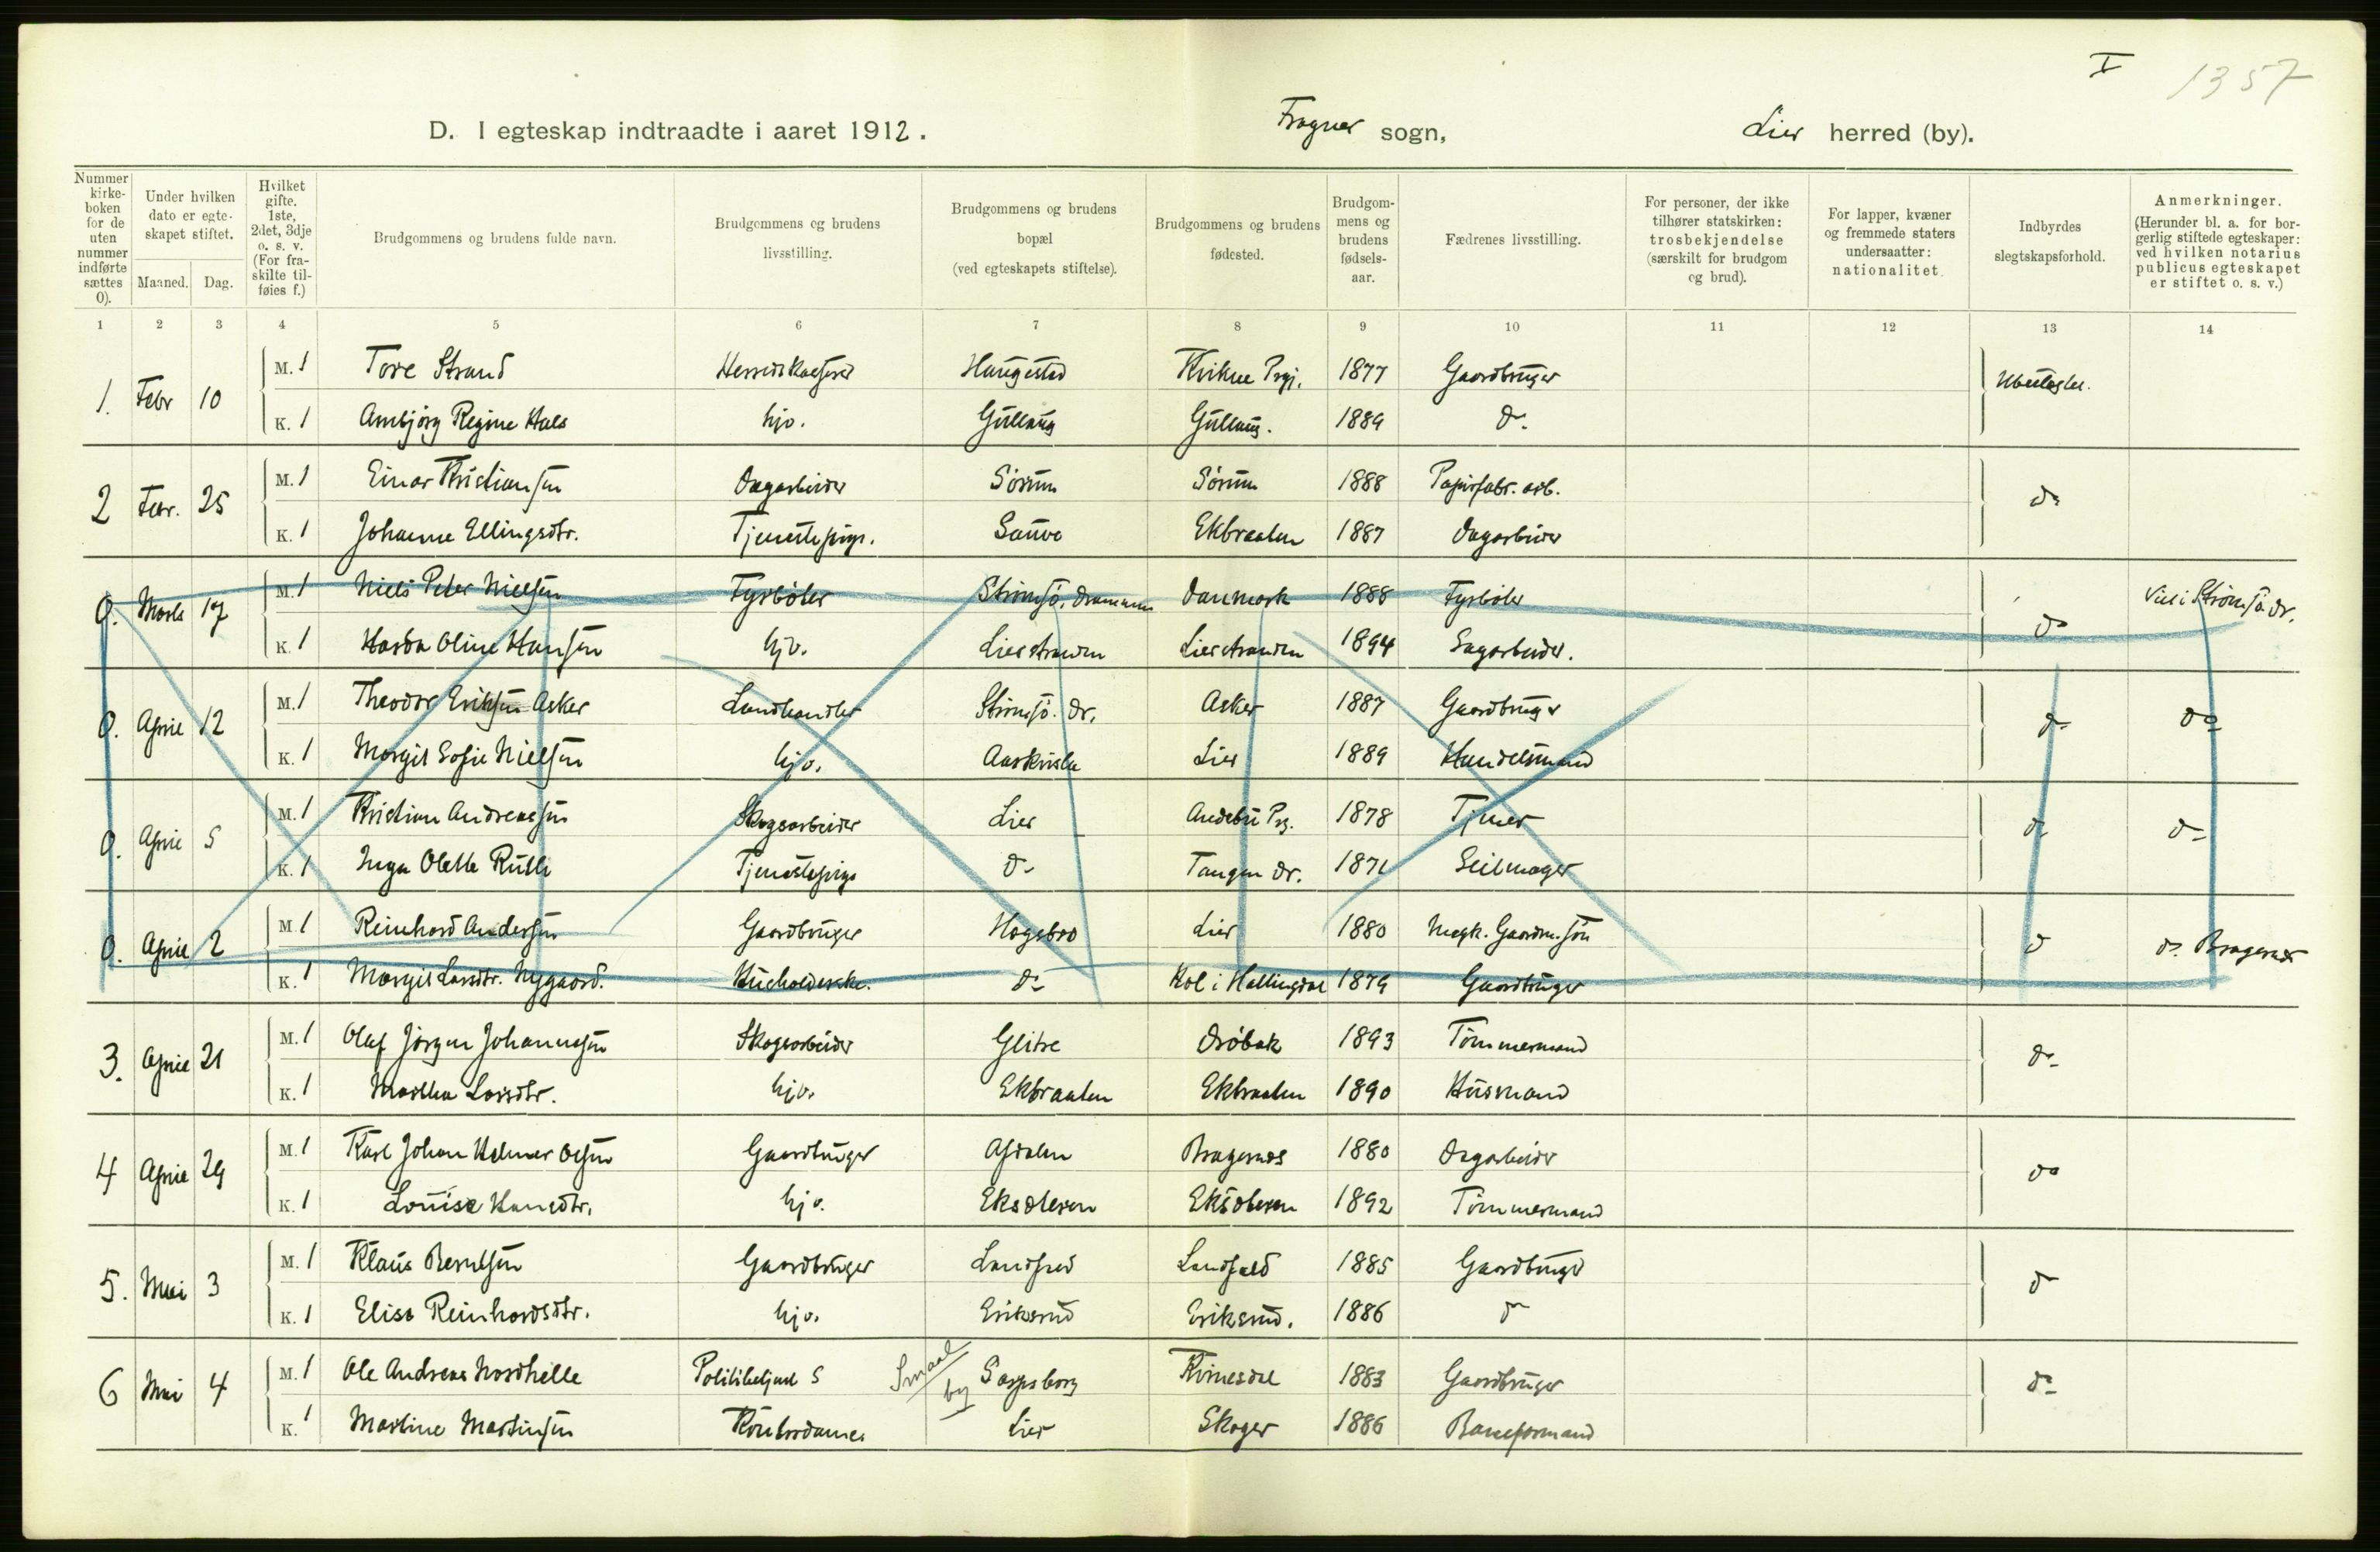 I 1357
D. I egteskap indtraadte i aaret 1912. Frogner sogn, Lier herred (by).
Nummer kirke-boken for de uten nummer indførte sættes 0). Under hvilken dato er egte-skapet stiftet. Maaned. Dag. Hvilket gifte. 1ste, 2det, 3dje o. s. v. (For fra-skilte til-føies f.) Brudgommens og brudens fulde navn. Brudgommens og brudens livsstilling. Brudgommens og brudens bopæl (ved egteskapets stiftelse). Brudgommens og brudens fødested. Brudgom-mens og brudens fødsels-aar. Fædrenes livsstilling. For personer, der ikke tilhører statskirken: trosbekjendelse (særskilt for brudgom og brud). For lapper, kvæner og fremmede staters undersaatter: nationalitet. Indbyrdes slegtskapsforhold. Anmerkninger. (Herunder bl. a. for bor-gerlig stiftede egteskaper: ved hvilken notarius publicus egteskapet er stiftet o. s. v.)
1 2 3 4 5 6 7 8 9 10 11 12 13 14
1. Febr 10 M. 1 Tore Strand Herredskasserer Haugestad Kvikne Prgj. 1877 Gaardbruger Ubeslegtet.
K. 1 Ambjørg Regine Hals hjv. Gullaug Gullaug. 1889 do.
2 Febr. 25 M. 1 Einar Kristiansen Dagarbeider Sørum Sørum 1888 Papirfabr. arb. do
K. 1 Johanne Ellingsdtr. Tjenestepige. Sauve Ekbraaten 1887 Dagarbeider
0. Marts 17 M. 1 Niels Peter Nielsen Fyrbøter Strømsø, Drammen Danmark 1888 Fyrbøter do Viet i Strømsø. Dr.
K. 1 Hasda Oline Hansen hjv. Lierstranden Lierstranden 1894 Sagarbeider.
0. April 12 M. 1 Theodor Eriksen Asker Landhandler Strømsø. Dr. Asker 1887 Gaardbruger do do
K. 1 Margit Sofie Nielsen hjv. Aaskvisla Lier 1889 Handelsmand
0. April 5 M. 1 Kristian Andreassen Skogsarbeider Lier Andebu Prg. 1878 Tjener do do
K. 1 Inga Olette Ruth Tjenestepige do Tangen Dr. 1871 Seilmager
0. April 2 M. 1 Reinhard Andersen Gaardbruger Hogsbro Lier 1880 Megk. Gaardm. søn do do. Bragernes
K. 1 Margit Larsdtr. Nygaard. Husholderske. do Hol i Hallingdal 1879 Gaardbruger
3. April 21 M. 1 Olaf Jørgen Johannessen Skogsarbeider Glitre Drøbak 1893 Tømmermand do
K. 1 Marthea Larsdtr. hjv. Ekbraaten Ekbraaten 1890 Husmand
4 April 29 M. 1 Karl Johan Helmer Olsen Gaardbruger Asdalen Bragernes 1880 Dagarbeider do
K. 1 Louise Hansdtr. hjv. Eksdleren Eksdleren 1892 Tømmermand
5. Mai 3 M. 1 Klaus Berntsen Gaardbruger Landfald Landfald 1885 Gaardbruger do
K. 1 Elise Reinhardsdtr. hjv. Eriksrud Eriksrud. 1886 do
6 Mai 4 M. 1 Ole Andreas Nordhelle Politibetjent S Smaal by Sarpsborg Kvinesdal 1883 Gaardbruger do
K. 1 Martine Martinsen Kontordame Lier Skoger 1886 Baneformand